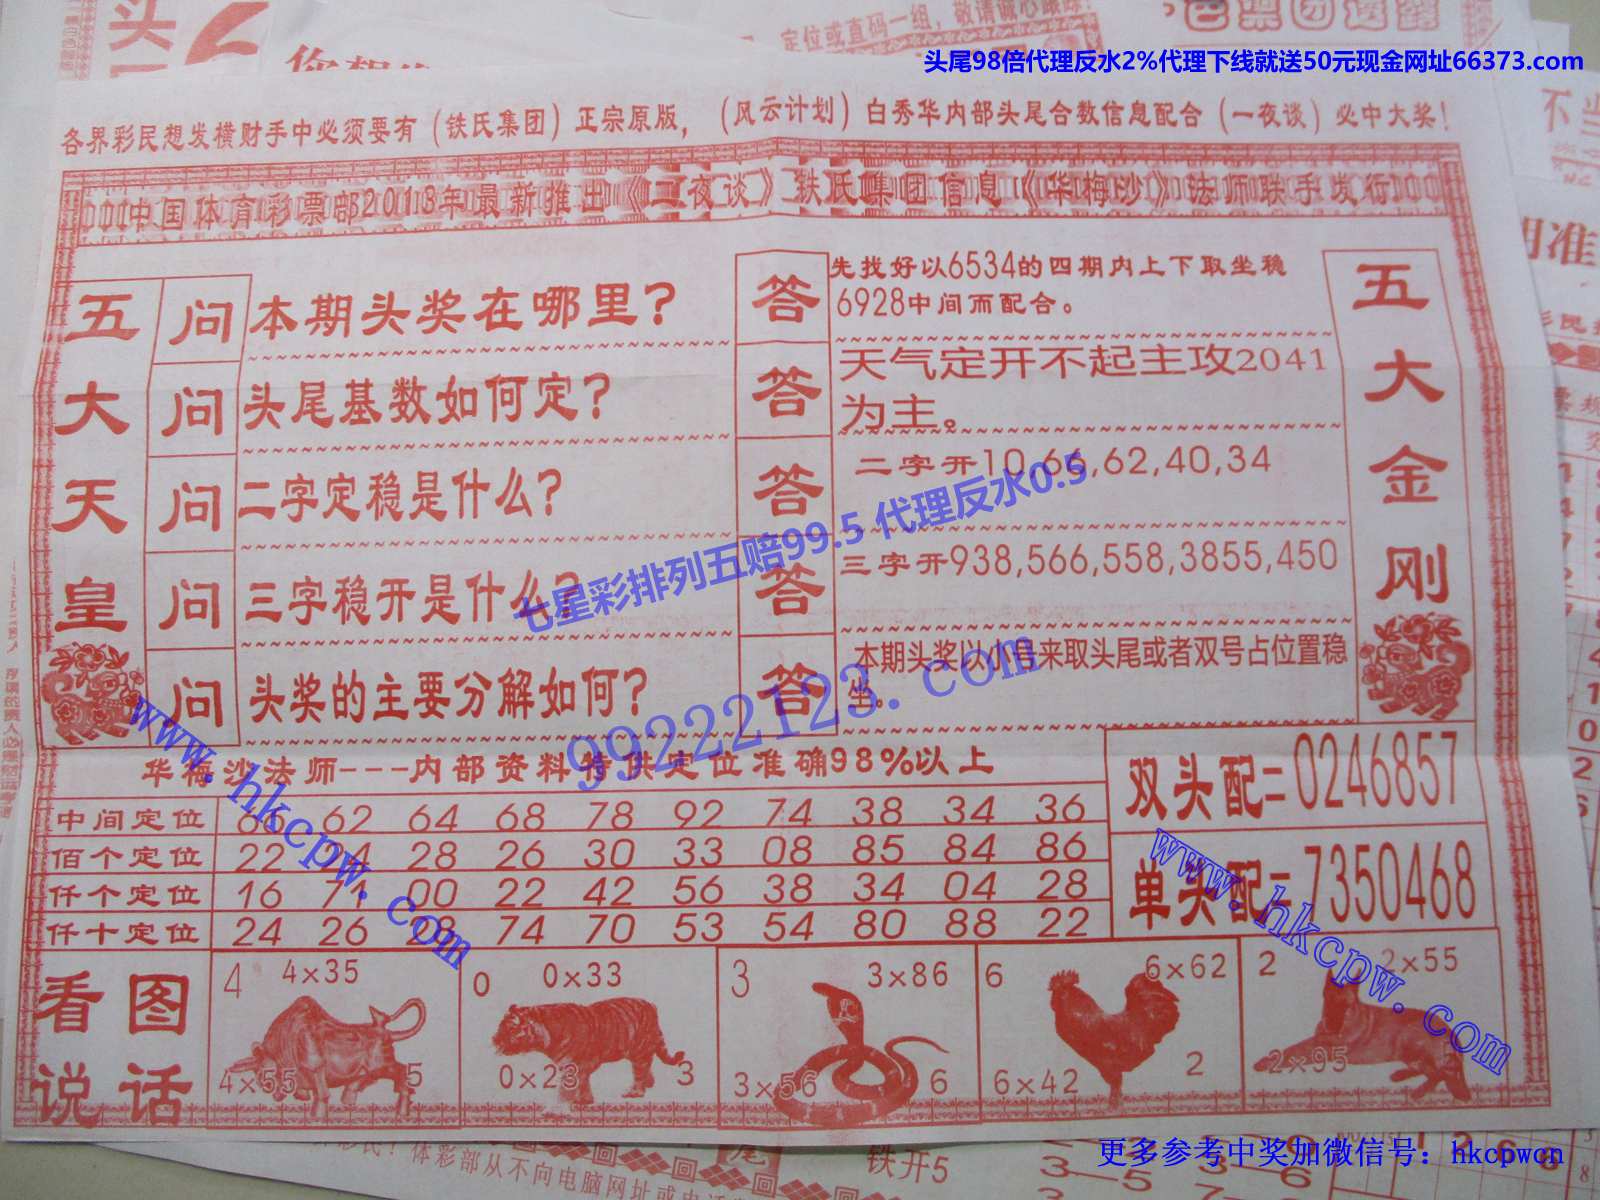 头尾98倍代理反水2%代理下线就送50元现金网址66373.com
各界彩民想发横财手中必须要有（铁氏集团）正宗原版，（风云计划）白秀华内部头尾合数信息配合（一夜谈）必中大奖！
中国体育彩票部2013年最新推出《二夜谈》铁氏集团信息《华梅沙》法师联手发行
五大天皇
问 本期头奖在哪里？
答 先找好以6534的四期内上下取坐稳
6928中间而配合。
问 头尾基数如何定？
答 天气定开不起主攻2041
为主。
问 二字定稳是什么？
答 二字开10,66,62,40,34
问 三字稳开是什么？
答 三字开938,566,558,3855,450
问 头奖的主要分解如何？
答 本期头奖以小号来取头尾或者双号占位置稳
坐。
五大金刚
七星彩排列五赔99.5 代理反水0.5
99222123.com
www.hkcpw.com
www.hkcpw.com
华梅沙法师---内部资料特供定位准确98%以上
中间定位 62 64 68 78 92 74 38 34 36
佰个定位 22 24 28 26 30 33 08 85 84 86
仟个定位 16 74 00 22 42 56 38 34 04 28
仟十定位 24 26 28 74 70 53 54 80 88 22
双头配=0246857
单头配=7350468
看图
说话
4 4×35
4×55 5
0 0×33
0×23 3
3 3×86
3×56 6
6 6×62
6×42 2
2 2×55
2×95
铁开5
更多参考中奖加微信号：hkcpwcn